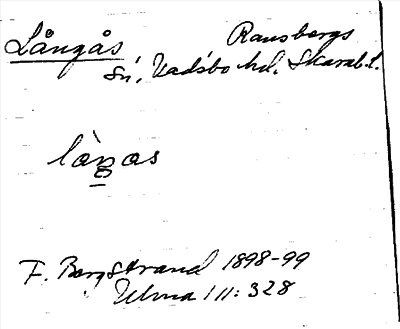 Långås Ransbergs
Sn, Vadsbo hd. Skarab.l.
làŋas
F. Bergstrand 1898-99
Ulma 111:328